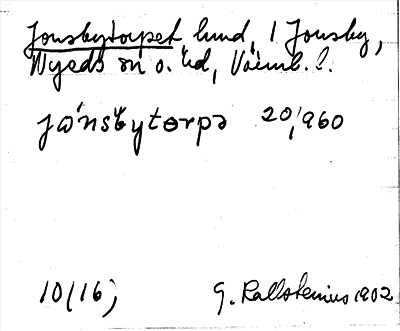 Jonsbytorpet lund, 1 Jonsby,
Nyeds sn o. hd, Värml. l.
jὼnsbytɵrpə 20/1960
10(16) G. Kallstenius 1902